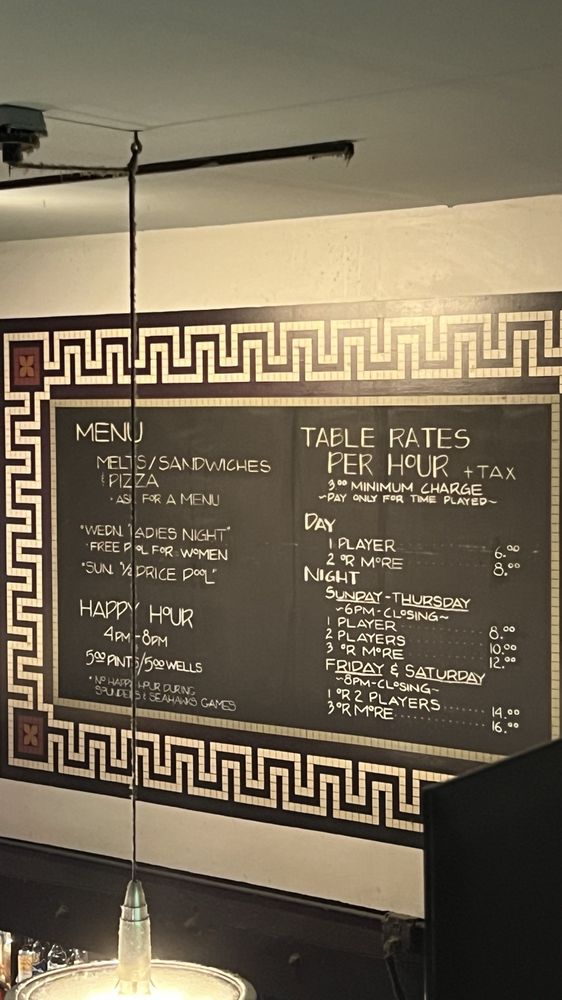 MENU
MELTS/SANDWICHES
& PIZZA
• ASK FOR A MENU
"WEDN. LADIES NIGHT"
• FREE POOL FOR WOMEN
"SUN. ½ PRICE POOL"
HAPPY HOUR
4PM-8PM
5.00 PINTS/5.00 WELLS
* NO HAPPY HOUR DURING
SOUNDERS & SEAHAWKS GAMES
TABLE RATES
PER HOUR +TAX
3.00 MINIMUM CHARGE
~PAY ONLY FOR TIME PLAYED~
DAY
1 PLAYER 6.00
2 OR MORE 8.00
NIGHT
SUNDAY-THURSDAY
~6PM-CLOSING~
1 PLAYER 8.00
2 PLAYERS 10.00
3 OR MORE 12.00
FRIDAY & SATURDAY
~8PM-CLOSING~
1 OR 2 PLAYERS 14.00
3 OR MORE 16.00